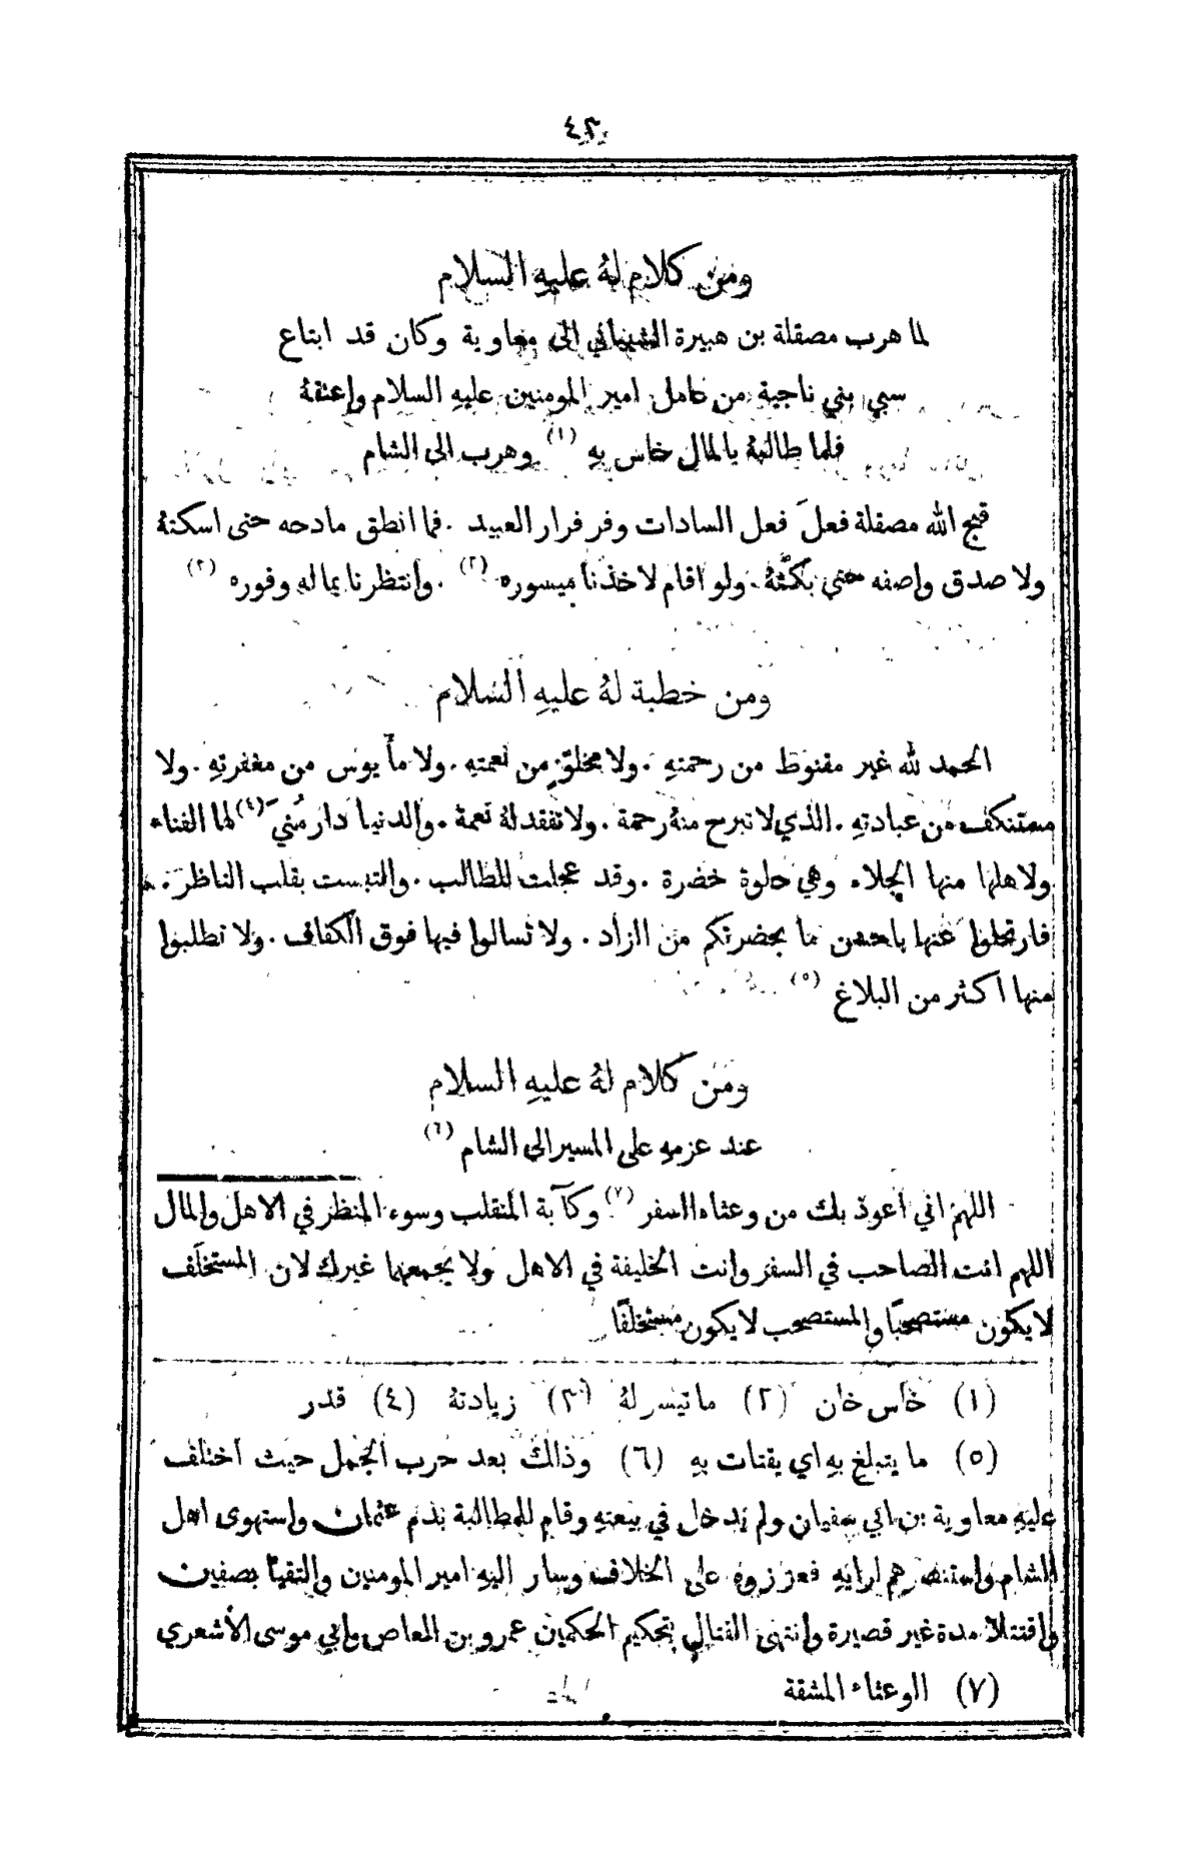 ٤٢
ومن كلام لهُ عليهِ السلام
لما هرب مصقلة بن هبيرة الشيباني الى معاوية وكان قد ابتاع
سبي بني ناجية من عامل امير المومنين عليهِ السلام واعتقهُ
فلما طالبهُ بالمال خاس بهِ (١) وهرب الى الشام
قبح الله مصقلة فعلَ فعل السادات وفر فرار العبيد . فما انطق مادحه حتى اسكتهُ
ولا صدق واصفه حتى بكتهُ . ولو اقام لاخذنا ميسوره (٢) . وانتظرنا بماله وفوره (٣)
ومن خطبة لهُ عليهِ السلام
الحمد لله غير مقنوط من رحمتهِ . ولا مخلوّ من نعمتهِ . ولا مأيوس من مغفرتهِ . ولا
مستنكف من عبادتهِ . الذي لا تبرح منهُ رحمة . ولا تفقد لهُ نعمة . والدنيا دار مُنيَ (٤) لها الفناء
ولاهلها منها الجلاء وهي حلوة خضرة . وقد عجلت للطالب . والتبست بقلب الناظر .
فارتحلوا عنها باحسن ما بحضرتكم من الزاد . ولا تسالوا فيها فوق الكفاف . ولا تطلبوا
منها اكثر من البلاغ (٥)
ومن كلام لهُ عليهِ السلام
عند عزمهِ على المسير الى الشام (٦)
اللهم اني اعوذ بك من وعثاء السفر (٧) وكآبة المنقلب وسوء المنظر في الاهل والمال
اللهم انت الصاحب في السفر وانت الخليفة في الاهل ولا يجمعهما غيرك لان المستخلَف
لا يكون مستصحبًا والمستصحب لا يكون مستخلفًا
(١) خاس خان (٢) ما تيسر لهُ (٣) زيادتهُ (٤) قدر
(٥) ما يتبلغ بهِ اي يقتات بهِ (٦) وذالك بعد حرب الجمل حيث اختلف
عليهِ معاوية بن ابي سفيان ولم يدخل في بيعتهِ وقام للمطالبة بدم عثمان واستهوى اهل
الشام واستنصرهم لرايهِ فعززوهُ على الخلاف وسار اليهِ امير المومنين والتقيا بصفين
واقتتلا مدة غير قصيرة وانتهى القتال بتحكيم الحكمين عمرو بن العاص وابي موسى الأشعري
(٧) الوعثاء المشقة